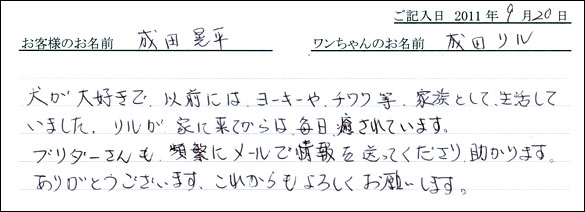 ご記入日 2011年 9月20日
お客様のお名前 成田 晃平 ワンちゃんのお名前 成田 リル
犬が大好きで、以前には、ヨーキーや、チワワ等、家族として、生活して
いました。リルが家に来てからは、毎日、癒されています。
ブリダーさんも、頻繁にメールで情報を送ってくださり、助かります。
ありがとうございます、これからもよろしくお願いします。